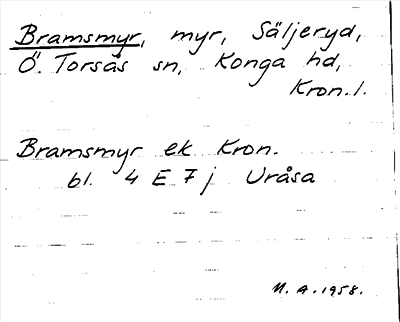 Bramsmyr, myr, Säljeryd,
Ö. Torsås sn, Konga hd,
Kron. l.
Bramsmyr ek Kron.
bl. 4 E 7 j Uråsa
M. A. 1958.